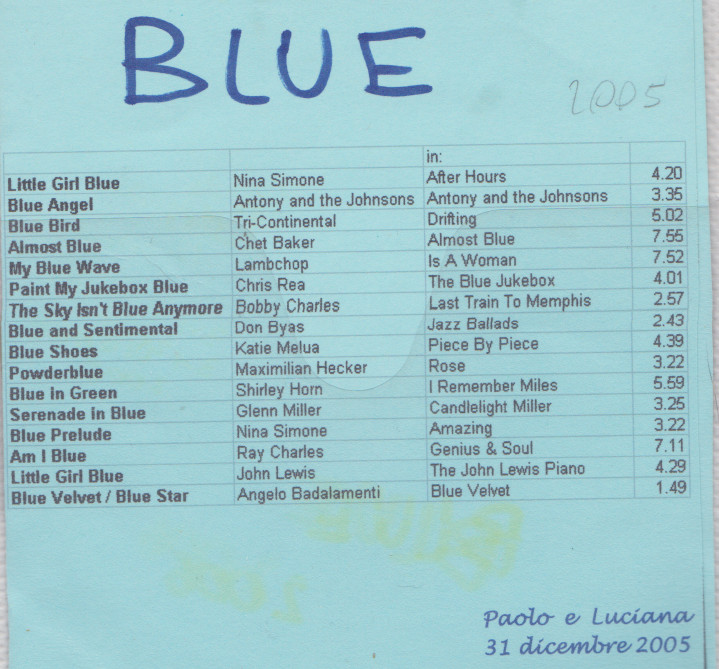 BLUE
2005
in:
Little Girl Blue Nina Simone After Hours 4.20
Blue Angel Antony and the Johnsons Antony and the Johnsons 3.35
Blue Bird Tri-Continental Drifting 5.02
Almost Blue Chet Baker Almost Blue 7.55
My Blue Wave Lambchop Is A Woman 7.52
Paint My Jukebox Blue Chris Rea The Blue Jukebox 4.01
The Sky Isn't Blue Anymore Bobby Charles Last Train To Memphis 2.57
Blue and Sentimental Don Byas Jazz Ballads 2.43
Blue Shoes Katie Melua Piece By Piece 4.39
Powderblue Maximilian Hecker Rose 3.22
Blue in Green Shirley Horn I Remember Miles 5.59
Serenade in Blue Glenn Miller Candlelight Miller 3.25
Blue Prelude Nina Simone Amazing 3.22
Am I Blue Ray Charles Genius & Soul 7.11
Little Girl Blue John Lewis The John Lewis Piano 4.29
Blue Velvet / Blue Star Angelo Badalamenti Blue Velvet 1.49
Paolo e Luciana
31 dicembre 2005